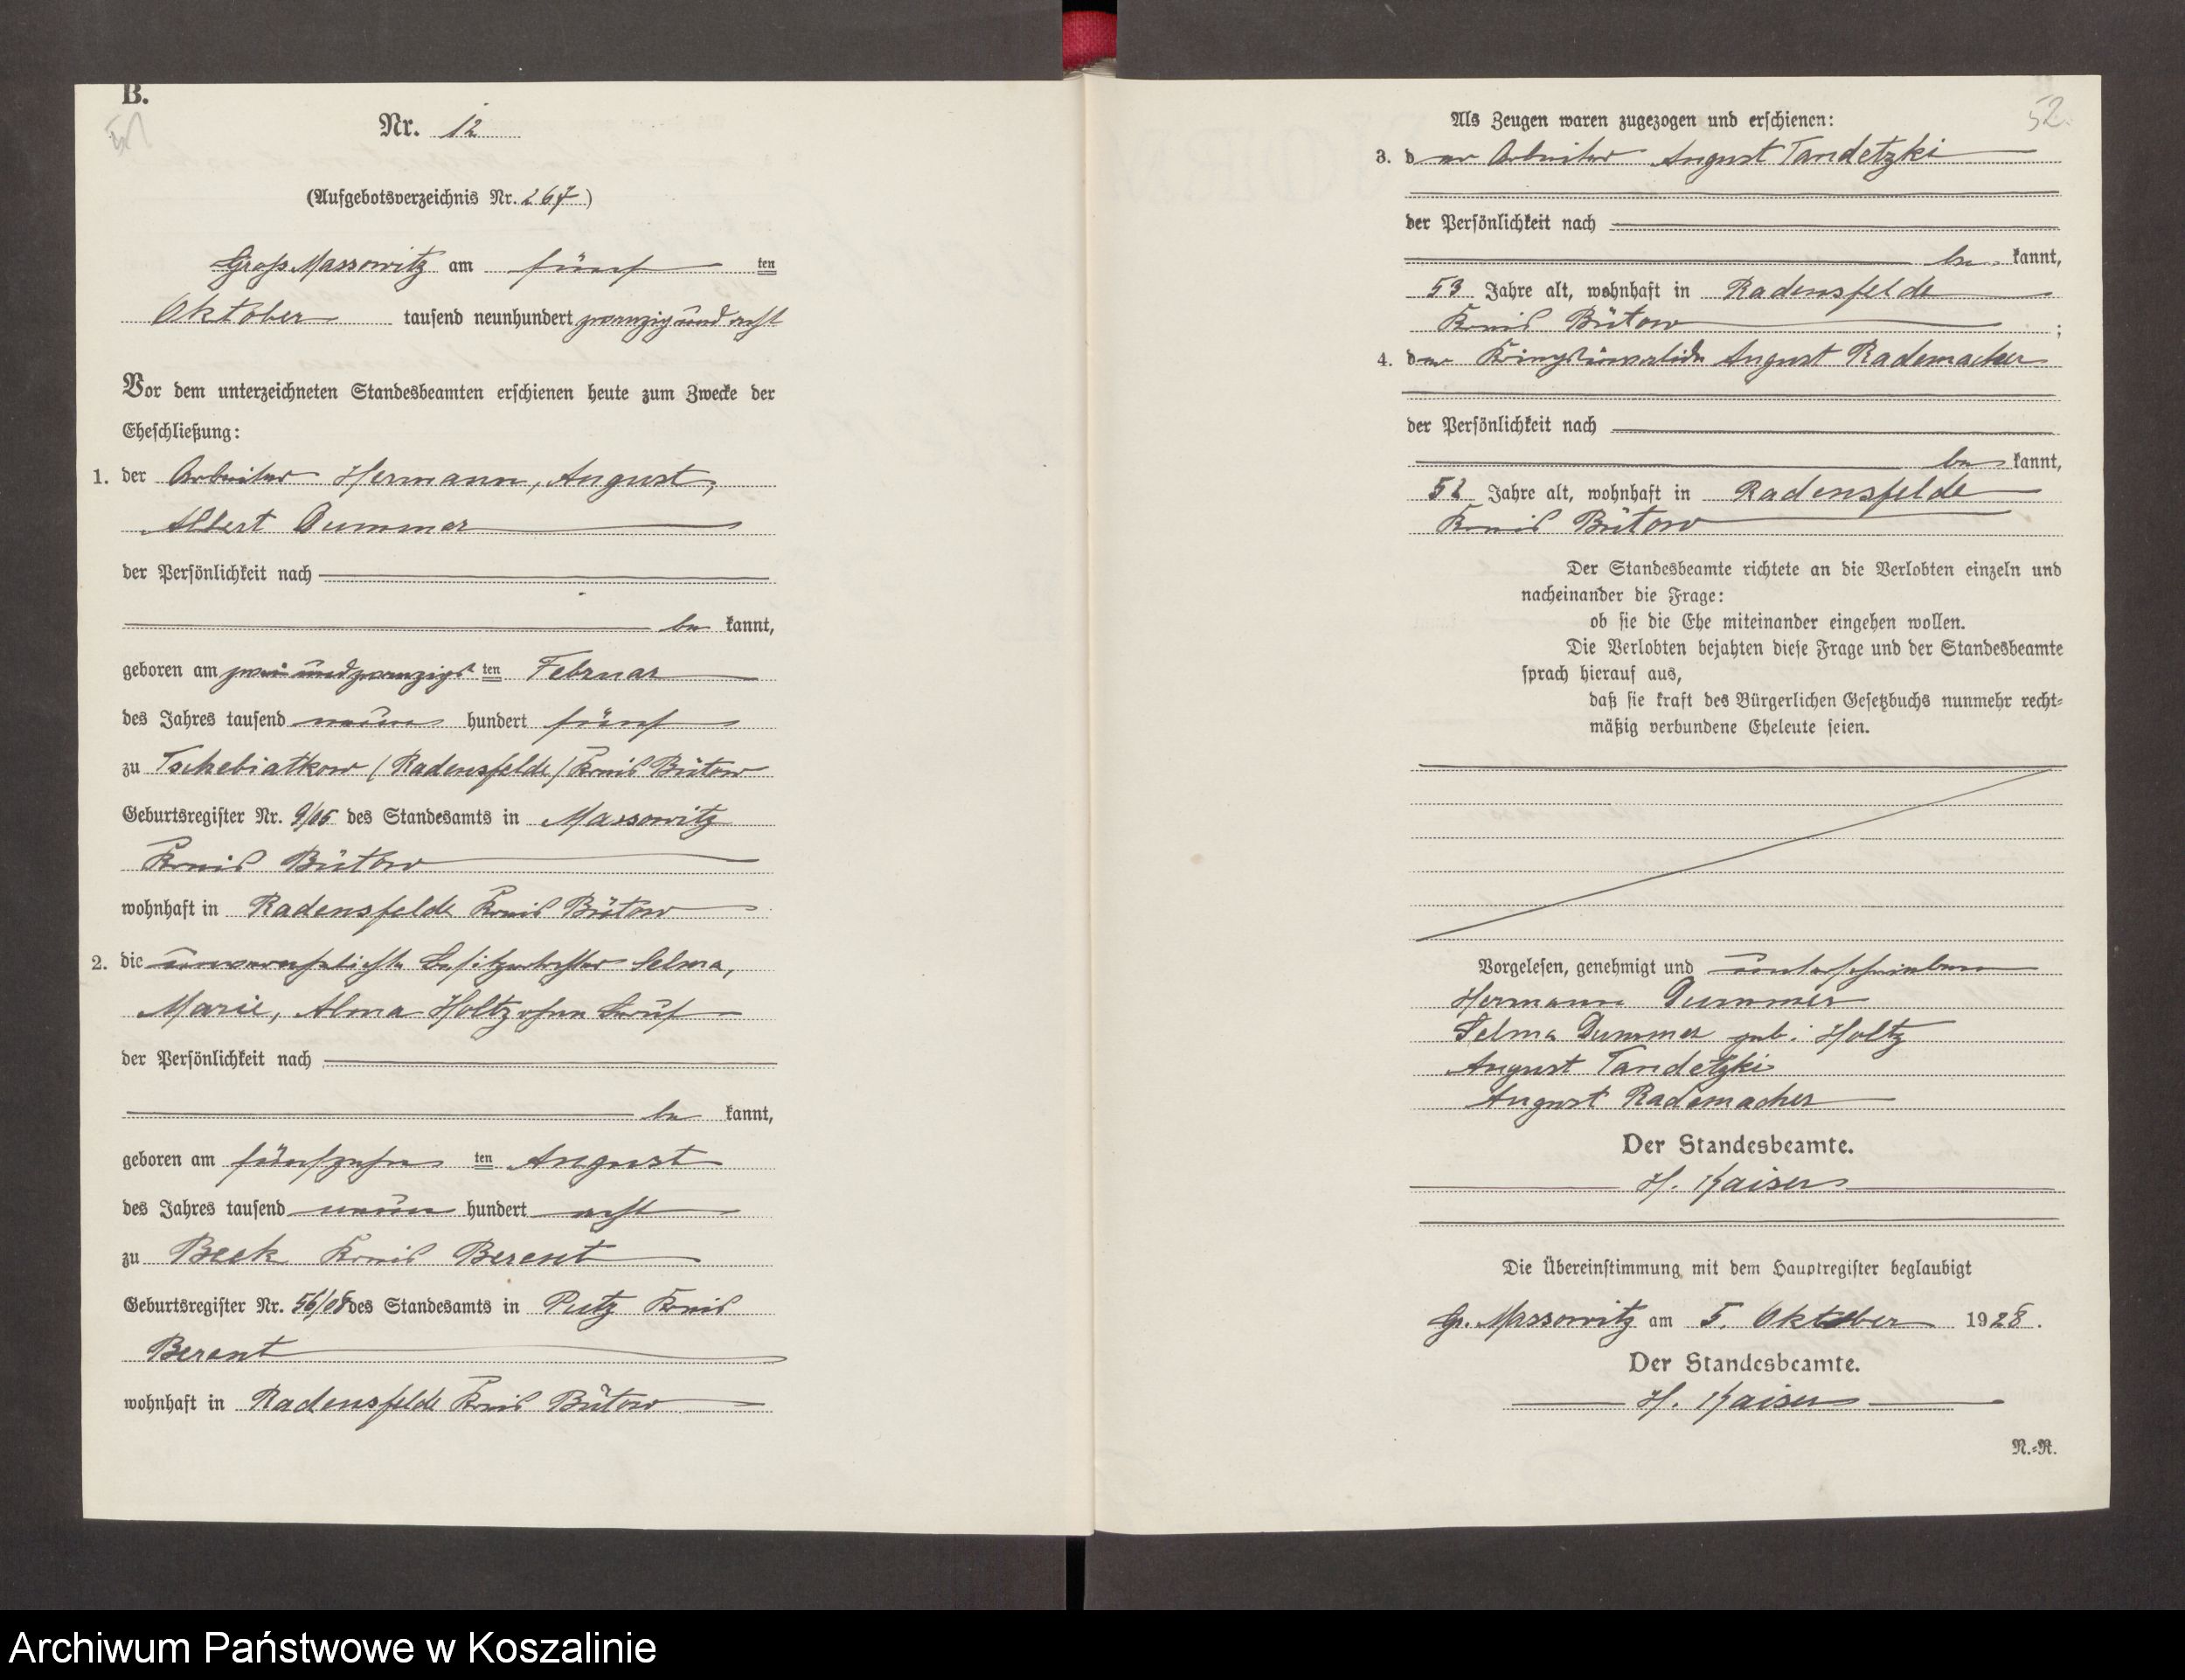 B.
51
Nr. 12
(Aufgebotsverzeichnis Nr. 267)
Groß Massowitz am fünf ten
Oktober tausend neunhundert zwanzig und acht
Vor dem unterzeichneten Standesbeamten erschienen heute zum Zwecke der
Eheschließung:
1. der Arbeiter Hermann, August,
Albert Dummer
der Persönlichkeit nach
be kannt,
geboren am zwei und zwanzigs ten Februar
des Jahres tausend neun hundert fünf
zu Tschebiatkow (Radensfelde) Kreis Bütow
Geburtsregister Nr. 9/05 des Standesamts in Massowitz
Kreis Bütow
wohnhaft in Radensfelde Kreis Bütow
2. die unverehelichte Besitzertochter Selma,
Marie, Alma Holtz ohne Beruf
der Persönlichkeit nach
be kannt,
geboren am fünfzehn ten August
des Jahres tausend neun hundert acht
zu Beek Kreis Berent
Geburtsregister Nr. 56/08 des Standesamts in Putz Kreis
Berent
wohnhaft in Radensfelde Kreis Bütow
52.
Als Zeugen waren zugezogen und erschienen:
3. d er Arbeiter August Tandetzki
der Persönlichkeit nach
be kannt,
53 Jahre alt, wohnhaft in Radensfelde
Kreis Bütow ;
4. d er Kriegsinvalide August Rademacher
der Persönlichkeit nach
be kannt,
52 Jahre alt, wohnhaft in Radensfelde
Kreis Bütow
Der Standesbeamte richtete an die Verlobten einzeln und
nacheinander die Frage:
ob sie die Ehe miteinander eingehen wollen.
Die Verlobten bejahten diese Frage und der Standesbeamte
sprach hierauf aus,
daß sie kraft des Bürgerlichen Gesetzbuchs nunmehr recht-
mäßig verbundene Eheleute seien.
Vorgelesen, genehmigt und unterschrieben
Hermann Dummer
Selma Dummer geb. Holtz
August Tandetzki
August Rademacher
Der Standesbeamte.
H. Kaiser
Die Übereinstimmung mit dem Hauptregister beglaubigt
Gr. Massowitz am 5. Oktober 1928.
Der Standesbeamte.
H. Kaiser
N.-R.
Archiwum Państwowe w Koszalinie